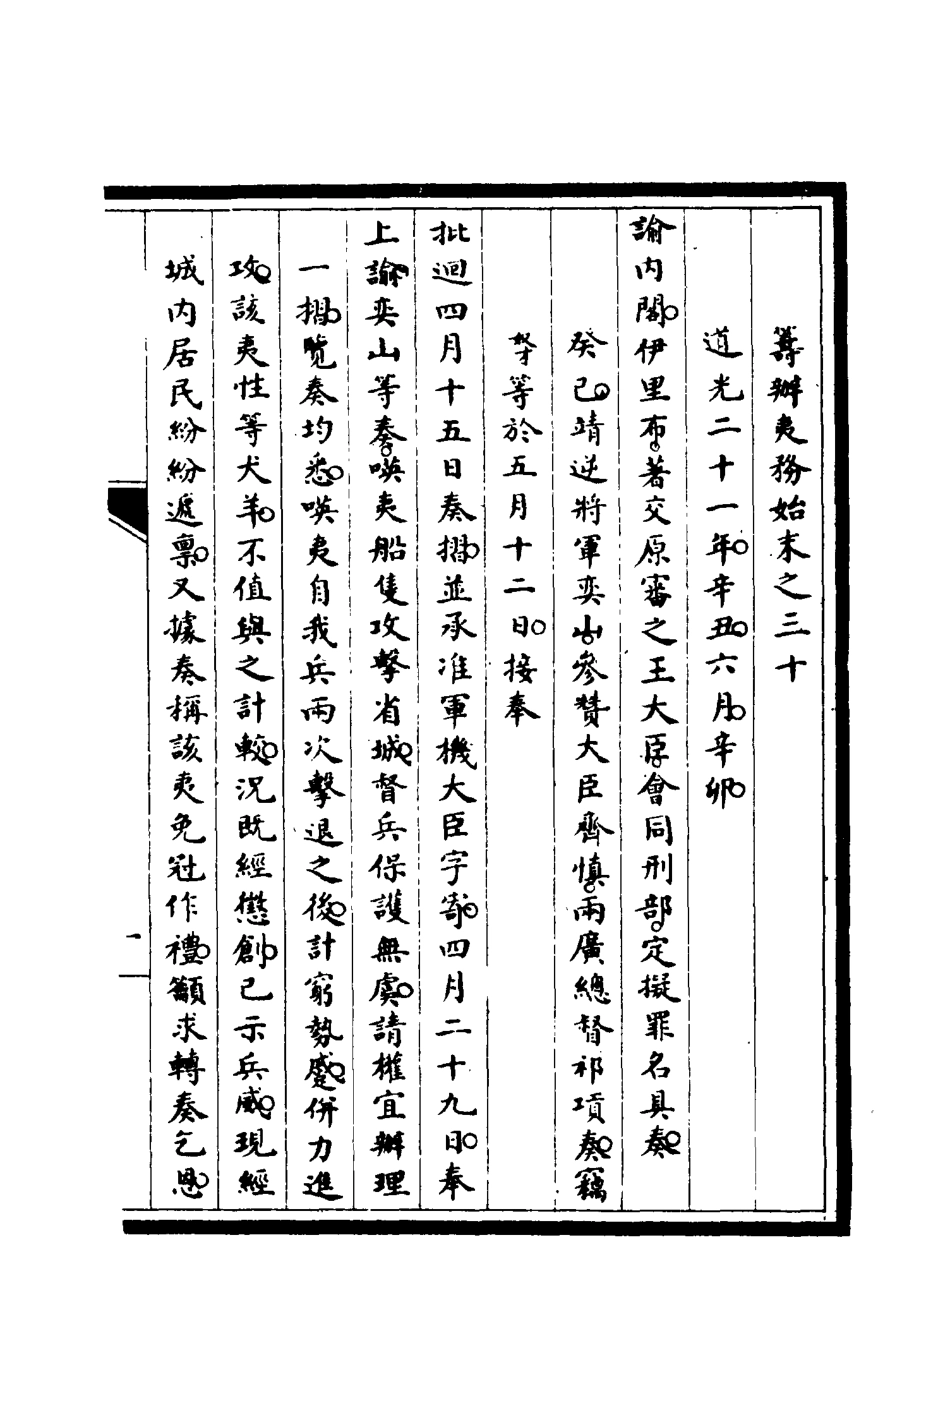 籌辦夷務始末之三十
道光二十一年。辛丑。六月。辛卯。
諭內閣。伊里布。著交原審之王大臣。會同刑部。定擬罪名具奏。
癸巳。靖逆將軍奕山。參贊大臣齊慎。兩廣總督祁𡎴奏。竊
奴才等於五月十二日。接奉
批迴四月十五日奏摺。並承准軍機大臣字寄。四月二十九日。奉
上諭。奕山等奏。嘆夷船隻攻擊省城。督兵保護無虞。請權宜辦理
一摺。覽奏均悉。嘆夷自我兵兩次擊退之後。計窮勢蹙。併力進
攻。該夷性等犬羊。不值與之計較。況既經懲創。已示兵威。現經
城內居民紛紛遞稟。又據奏稱該夷免冠作禮。籲求轉奏乞恩。
一